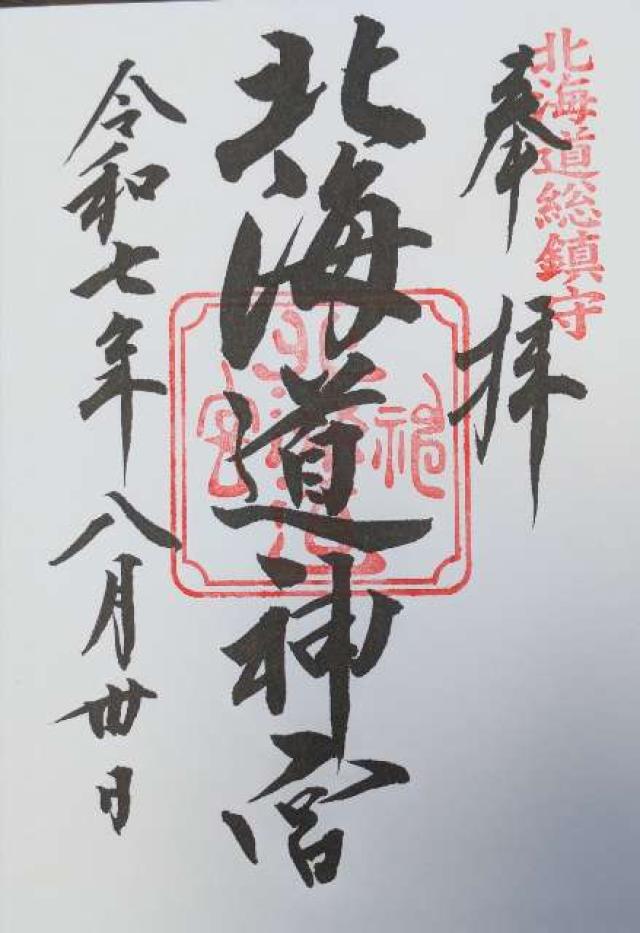 北海道総鎮守
奉拝
北海道神宮
令和七年八月卅日